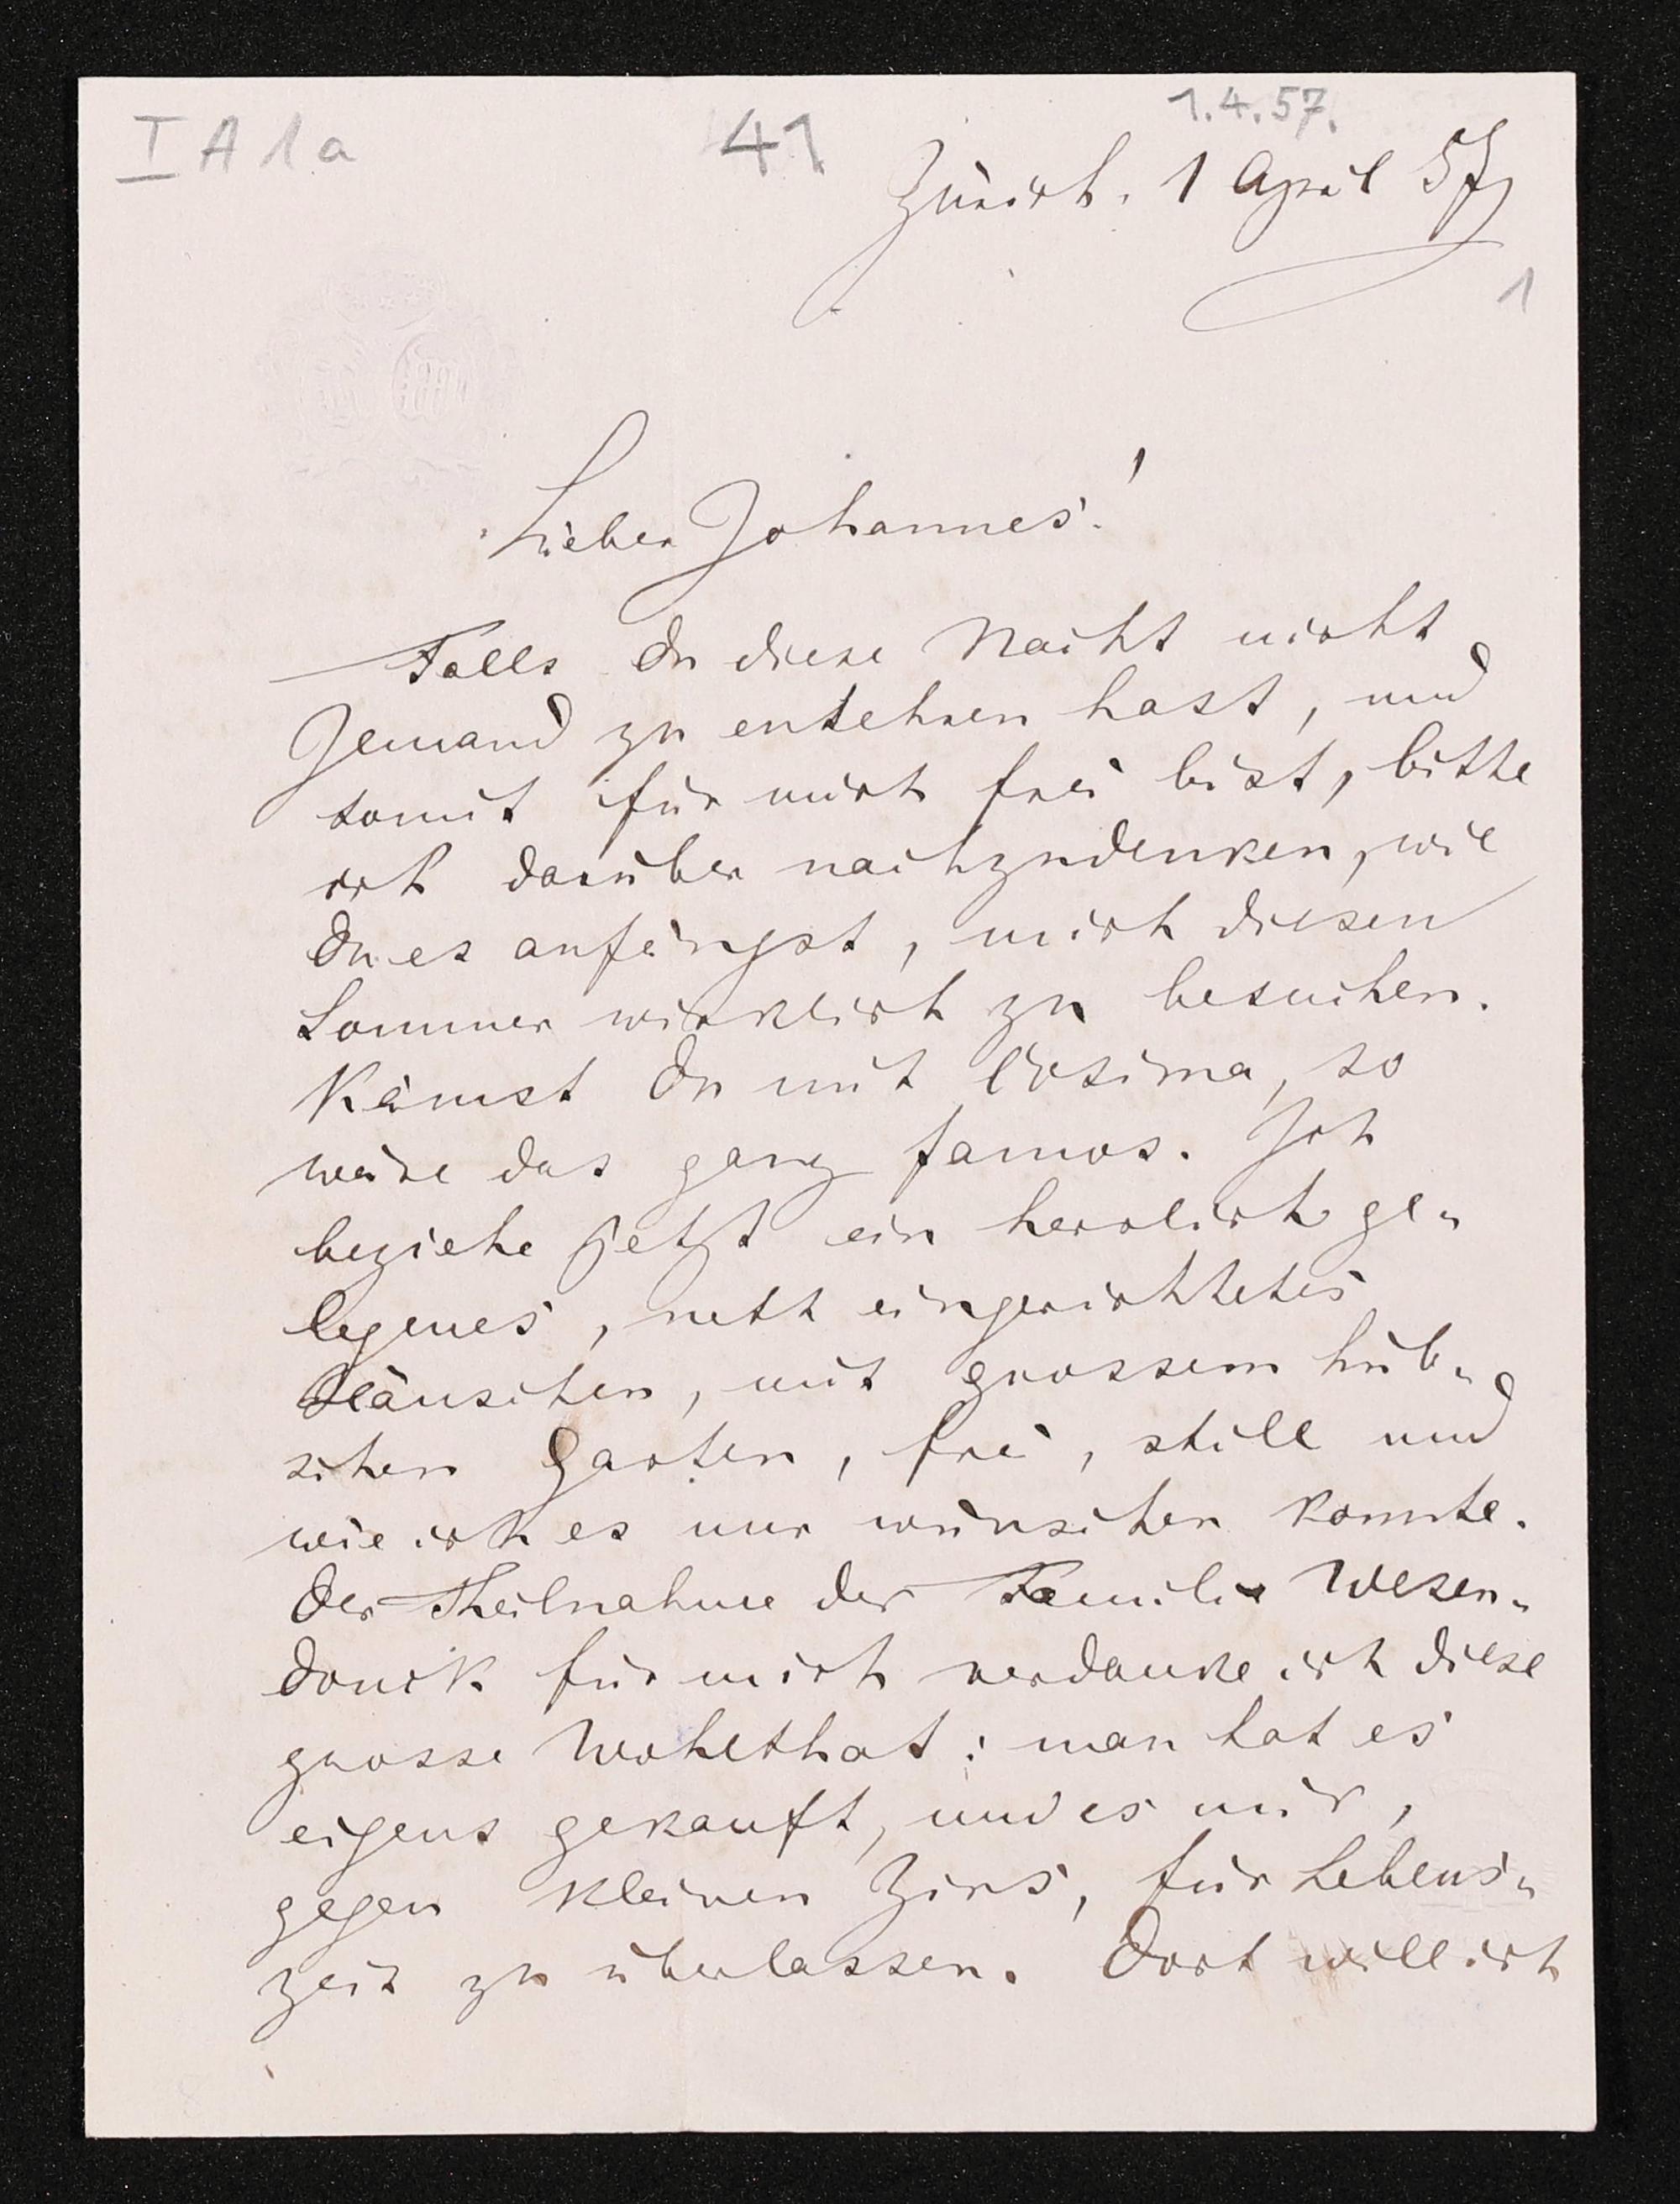 I A 1 a
41
1.4.57.
Zürich. 1 April 57
1
Lieber Johannes!
Falls du diese Nacht nicht
Jemand zu entehren hast, und
somit für mich frei bist, bitte
ich darüber nachzudenken, wie
du es anfängst, mich diesen
Sommer wirklich zu besuchen.
Kämst du mit Cosima, so
wäre das ganz famos. Ich
beziehe jetzt ein herrlich ge-
legenes, nett eingerichtetes
Häuschen, mit grossem hüb-
schen Garten, frei, still und
wie ich es nur wünschen konnte.
Der Theilnahme der Familie Wesen-
donck für mich verdanke ich diese
grosse Wohlthat: man hat es
eigens gekauft, um es mir,
gegen kleinen Zins, für Lebens-
zeit zu überlassen. Dort will ich